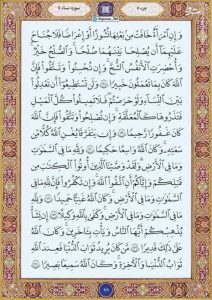 جزء ٥
سوره نساء ٤
وَإِنِ ٱمْرَأَةٌ خَافَتْ مِنۢ بَعْلِهَا نُشُوزًا أَوْ إِعْرَاضًا فَلَا جُنَاحَ
عَلَيْهِمَآ أَن يُصْلِحَا بَيْنَهُمَا صُلْحًا وَٱلصُّلْحُ خَيْرٌ
وَأُحْضِرَتِ ٱلْأَنفُسُ ٱلشُّحَّ وَإِن تُحْسِنُوا۟ وَتَتَّقُوا۟ فَإِنَّ
ٱللَّهَ كَانَ بِمَا تَعْمَلُونَ خَبِيرًا وَلَن تَسْتَطِيعُوٓا۟ أَن تَعْدِلُوا۟
بَيْنَ ٱلنِّسَآءِ وَلَوْ حَرَصْتُمْ فَلَا تَمِيلُوا۟ كُلَّ ٱلْمَيْلِ
فَتَذَرُوهَا كَٱلْمُعَلَّقَةِ وَإِن تُصْلِحُوا۟ وَتَتَّقُوا۟ فَإِنَّ
ٱللَّهَ كَانَ غَفُورًا رَّحِيمًا وَإِن يَتَفَرَّقَا يُغْنِ ٱللَّهُ كُلًّا مِّن
سَعَتِهِۦ وَكَانَ ٱللَّهُ وَٰسِعًا حَكِيمًا وَلِلَّهِ مَا فِى ٱلسَّمَٰوَٰتِ
وَمَا فِى ٱلْأَرْضِ وَلَقَدْ وَصَّيْنَا ٱلَّذِينَ أُوتُوا۟ ٱلْكِتَٰبَ مِن
قَبْلِكُمْ وَإِيَّاكُمْ أَنِ ٱتَّقُوا۟ ٱللَّهَ وَإِن تَكْفُرُوا۟ فَإِنَّ لِلَّهِ مَا
فِى ٱلسَّمَٰوَٰتِ وَمَا فِى ٱلْأَرْضِ وَكَانَ ٱللَّهُ غَنِيًّا حَمِيدًا وَلِلَّهِ
مَا فِى ٱلسَّمَٰوَٰتِ وَمَا فِى ٱلْأَرْضِ وَكَفَىٰ بِٱللَّهِ وَكِيلًا إِن يَشَأْ
يُذْهِبْكُمْ أَيُّهَا ٱلنَّاسُ وَيَأْتِ بِـَٔاخَرِينَ وَكَانَ ٱللَّهُ
عَلَىٰ ذَٰلِكَ قَدِيرًا مَّن كَانَ يُرِيدُ ثَوَابَ ٱلدُّنْيَا فَعِندَ ٱللَّهِ
ثَوَابُ ٱلدُّنْيَا وَٱلْـَٔاخِرَةِ وَكَانَ ٱللَّهُ سَمِيعًۢا بَصِيرًا
٩٩